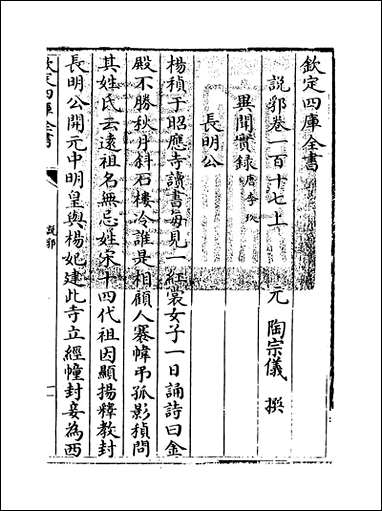 欽定四庫全書
說郛卷一百十七上
元 陶宗儀 撰
異聞實錄 唐李玫
長明公
楊禎于昭應寺讀書每見一紅裳女子一日誦詩曰金
殿不勝秋月斜石樓冷誰是相顧人褰帷弔孤影禎問
其姓氏云遠祖名無忌姓宋十四代祖因顯揚釋教封
長明公開元中明皇與楊妃建此寺立經幢封妾為西
欽定四庫全書
說郛
一